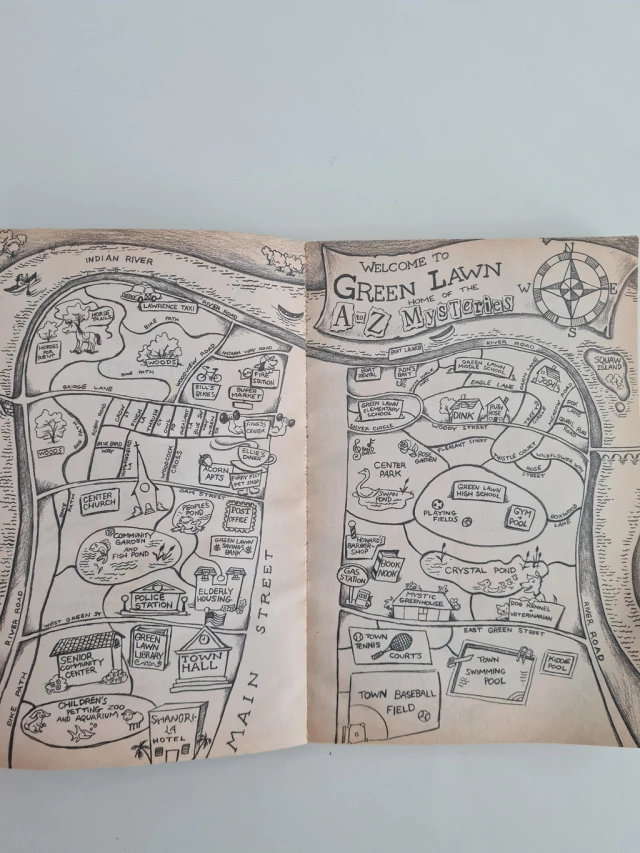 INDIAN RIVER
LAWRENCE TAXI
RIVER ROAD
BIKE PATH
HORSES
FOR
RENT
WOODS
BIKE PATH
WOODS
BRIDGE LANE
BILL'S
BIKES
FIRE
STATION
SUPER
MARKET
FITNESS
CENTER
ELLIE'S
DINER
BLUE BIRD
WAY
ACORN
APTS
FURRY FEET
PET SHOP
OAK STREET
CENTER
CHURCH
PEOPLE'S
POND
POST
OFFICE
COMMUNITY
GARDEN
AND
FISH POND
GREEN LAWN
SAVINGS
BANK
POLICE
STATION
ELDERLY
HOUSING
RIVER ROAD
WEST GREEN ST.
SENIOR
COMMUNITY
CENTER
GREEN
LAWN
LIBRARY
TOWN
HALL
BIKE PATH
CHILDREN'S
PETTING ZOO
AND AQUARIUM
SHANGRI-
LA
HOTEL
MAIN STREET
WELCOME TO
GREEN LAWN
HOME OF THE
A to Z MYSTERIES
N
W
E
S
RIVER ROAD
SQUAW
ISLAND
BOAT
RENTAL
RON'S
BAIT
GREEN LAWN
MIDDLE SCHOOL
EAGLE LANE
JOSH
GREEN LAWN
ELEMENTARY
SCHOOL
DINK
RUTH
ROSE
SILVER CIRCLE
WOODY STREET
PLEASANT STREET
ROSE
GARDEN
THISTLE COURT
ROSE
STREET
CENTER
PARK
SWAN
POND
GREEN LAWN
HIGH SCHOOL
PLAYING
FIELDS
GYM
+
POOL
BOXWOOD
LANE
HOWARD'S
BARBER-
SHOP
BOOK
NOOK
GAS
STATION
CRYSTAL POND
MYSTIC
GREENHOUSE
DOG KENNEL
+
VETERINARIAN
EAST GREEN STREET
RIVER ROAD
TOWN
TENNIS
COURTS
TOWN
SWIMMING
POOL
KIDDIE
POOL
TOWN BASEBALL
FIELD